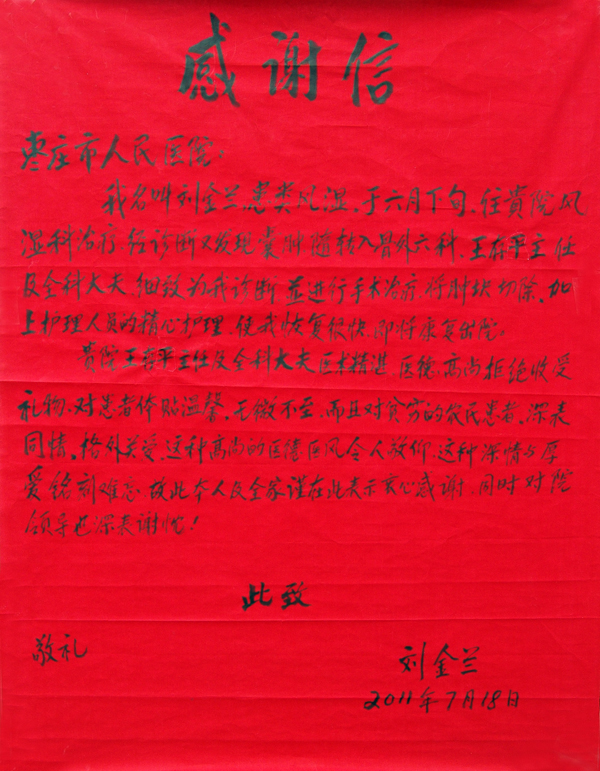 感谢信
枣庄市人民医院:
我名叫刘金兰患类风湿,于六月下旬,住贵院风
湿科治疗,经诊断又发现囊肿随转入骨外六科、王存平主任
及全科大夫,细致为我诊断並进行手术治疗,将肿块切除、加
上护理人员的精心护理,使我恢复很快,即将康复出院。
贵院王存平主任及全科大夫医术精进、医德高尚拒绝收受
礼物、对患者体贴温馨、无微不至,而且对贫穷的农民患者,深表
同情、格外关爱,这种高尚的医德医风令人敬仰,这种深情与厚
爱铭刻难忘,故此本人及全家谨在此表示衷心感谢,同时对院
领导也深表谢忱!
此致
敬礼
刘金兰
2011年7月18日